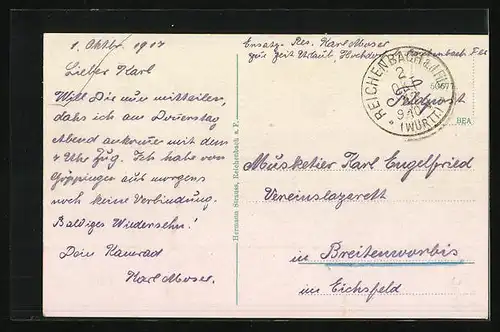 1. Oktbr. 1917
Lieber Karl
Will Dir nun mitteilen,
daß ich am Donerstag
Abend ankomme mit dem
7 Uhr Zug. Ich habe von
Göppinger aus morgens
noch keine Verbindung.
Baldiges Wiedersehn!
Dein Kamrad
Karl Moser.
Hermann Strauss, Reichenbach a. F.
Ersatz-Res. Karl Moser
zur Zeit Urlaub, Hochdorf
REICHENBACH a.d. FILS
(WÜRTT.)
Feldpost
BEA.
Musketier Karl Engelfried
Vereinslazarett
in Breitenworbis
im Eichsfeld